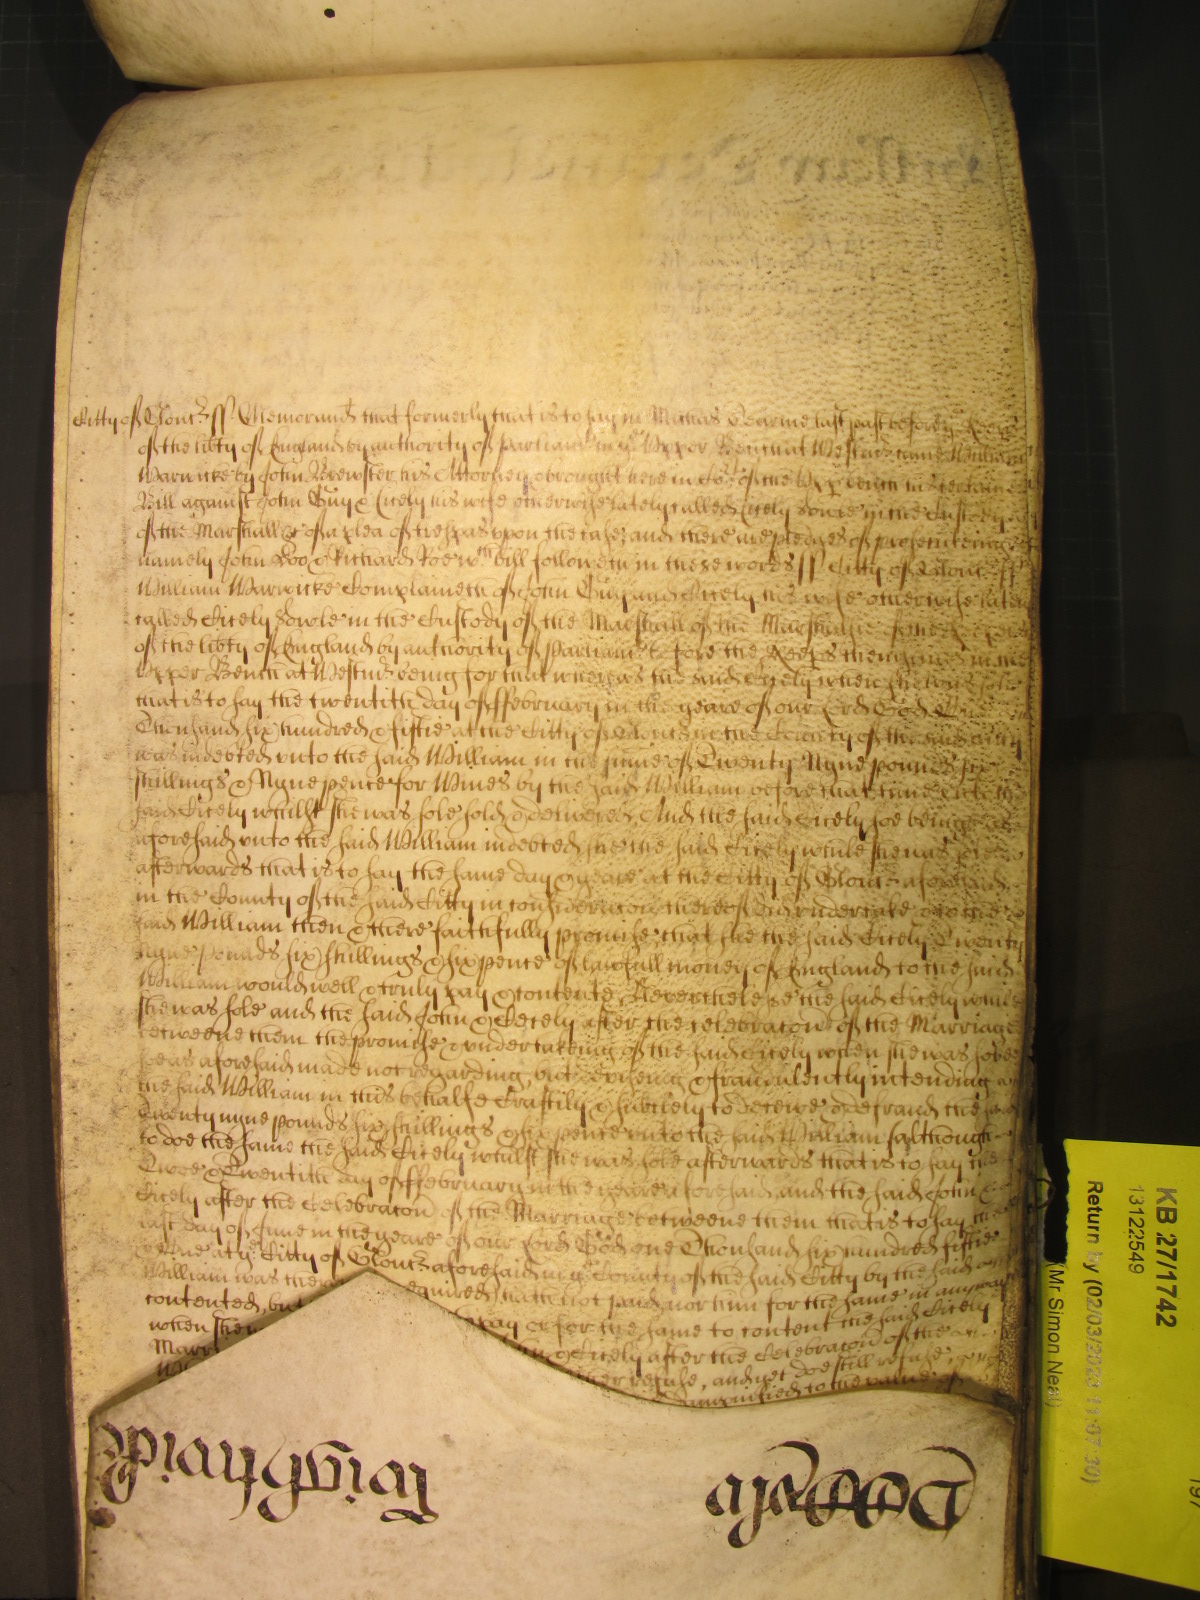 Citty of Glouc ss Memorand that formerly that is to say in Mich'as Tearme last past before ye Keeps
of the libty of England by authority of Parliam in ye Upper Bench at Westm came William
Warwicke by John Brewster his Attorney & brought here in Co of the Upp bench in certaine
Bill against John Guy & Cicely his wife otherwise lately called Cicely Sowle in the Custody
of the Marshall &c of a plea of trespas upon the case and there are pledges of prosecuteing
namely John Doo & Richard Roe wch bill followeth in these words ss Citty of Glouc ss
William Warwicke Complaineth of John Guy and Cicely his wife otherwise lately
called Cicely Sowle in the Custody of the Marshall of the Marshalsie
of the libty of England by authority of Parliam before the Keeps in the
Upper Bench at Westm being for that whereas the said Cicely when she was sole
that is to say the twentith day of ffebruary in the yeare of our Lord God One
Thousand six hundred & fiftie at the Citty of Glouc in the County of the said Citty
was indebted unto the said William in the sume of Twenty Nyne pounds six
shillings & Nyne pence for Wines by the said William before that time to the
said Cicely whilst she was sole sold & delivered And the said Cicely soe being
aforesaid unto the said William indebted she the said Cicely while she was sole
afterwards that is to say the same day & yeare at the Citty of Glouc aforesaid
in the County of the said Citty in consideracon thereof did undertake & to the
said William then & there faithfully promise that she the said Cicely Twenty
nyne pounds six shillings & six pence of lawfull money of England to the said
William would well & truly pay & contente Neverthelesse the said Cicely while
she was sole and the said John & Cicely after the celebracon of the Marriage
betweene them the promise & undertakeing of the said Cicely when she was sole
soe as aforesaid made not regarding but deviseing & fraudulently intending
the said William in this behalfe Craftily & subtilely to deceive & defraud the said
Twenty nyne pounds six shillings & six pence unto the said William (although
to doe the same the said Cicely whilst she was sole afterwards that is to say the
Twoe & Twentith day of ffebruary in the yeare aforesaid and the said John &
Cicely after the Celebracon of the Marriage betweene them that is to say the
last day of June in the yeare of our Lord God one Thousand six hundred fiftie
& One at ye Citty of Glouc aforesaid in ye County of the said Citty by the said
William was there required) hath not paid nor him for the same in any
contented, but pay or for the same to content the said Cicely
when she & Cicely after the Celebracon of the
Marr refuse, and yet doe still refuse
damnified to the value of
KB 27/1742
13122549
Return by (02/03/2023 11:07:30)
(Mr Simon Neal)